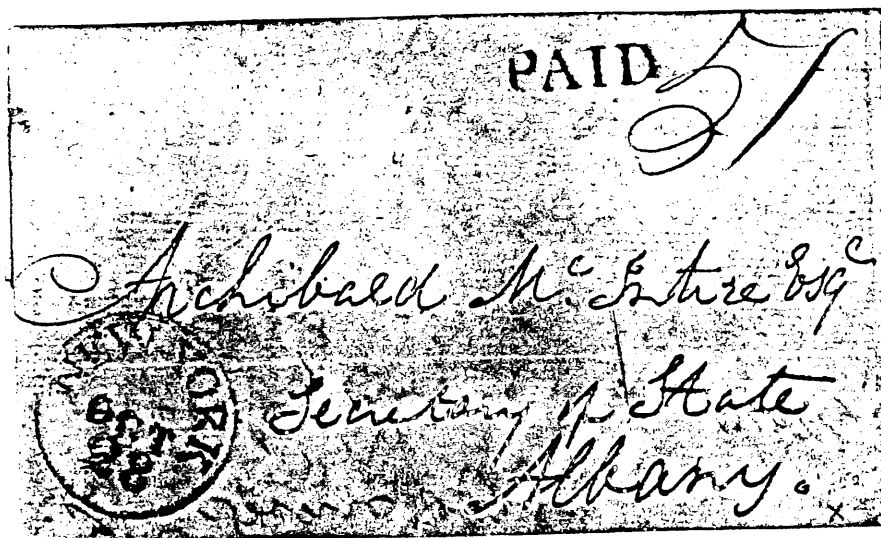 PAID 51
Archibald Mc. Intire Esqe
Secretary of State
Albany.
NEW YORK
OCT
x